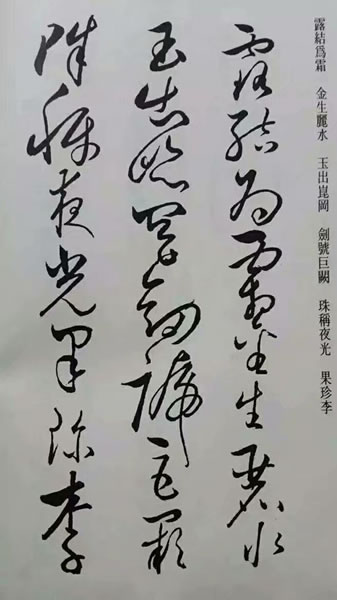 露結爲霜 金生麗水 玉出崑岡 劍號巨闕 珠稱夜光 果珍李
露結為霜金生麗水
玉出崑岡劍號巨闕
珠稱夜光果珍李